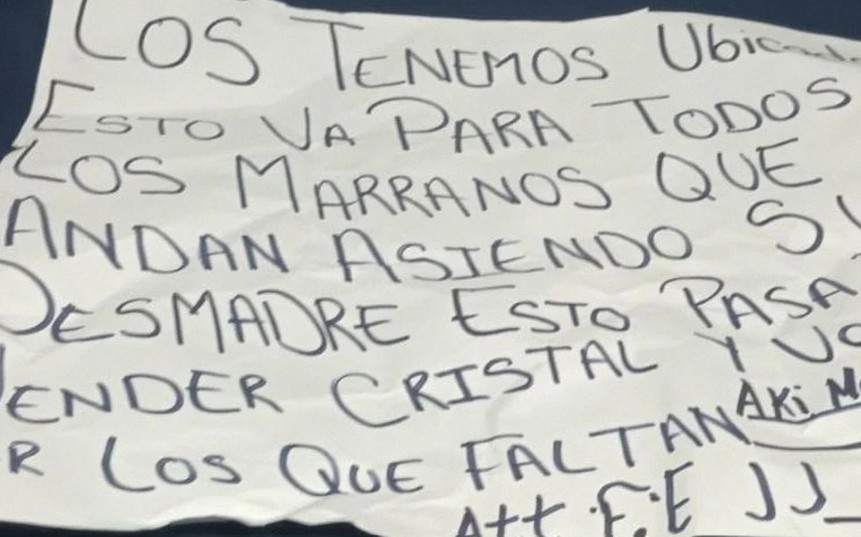 LOS TENEMOS
ESTO VA PARA TODOS
LOS MARRANOS QUE
ANDAN ASIENDO
DESMADRE ESTO PASA
VENDER CRISTAL Y
R LOS QUE FALTAN AKi
Att. F.E JJ